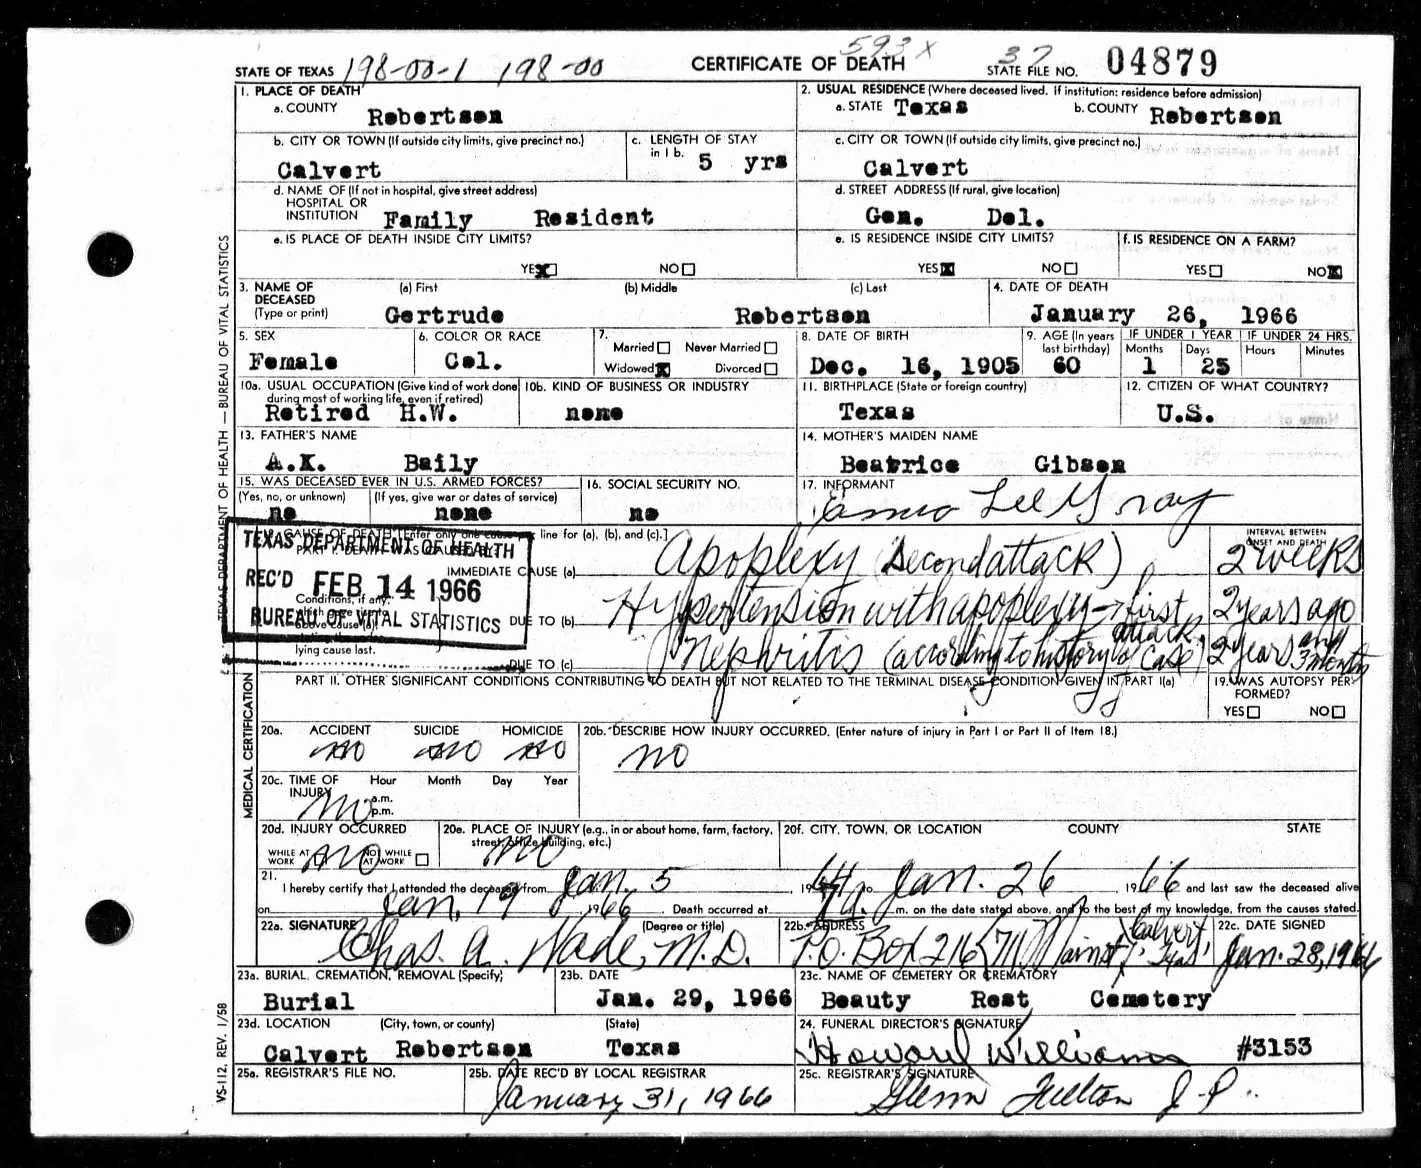 STATE OF TEXAS 198-00-1 198-00 CERTIFICATE OF DEATH 593x 37 STATE FILE NO. 04879
1. PLACE OF DEATH
a. COUNTY Robertson
2. USUAL RESIDENCE (Where deceased lived. If institution: residence before admission)
a. STATE Texas b. COUNTY Robertson
b. CITY OR TOWN (If outside city limits, give precinct no.)
Calvert
c. LENGTH OF STAY
in 1 b. 5 yrs
c. CITY OR TOWN (If outside city limits, give precinct no.)
Calvert
d. NAME OF (If not in hospital, give street address)
HOSPITAL OR
INSTITUTION Family Resident
d. STREET ADDRESS (If rural, give location)
Gen. Del.
e. IS PLACE OF DEATH INSIDE CITY LIMITS?
YES NO
e. IS RESIDENCE INSIDE CITY LIMITS?
YES NO
f. IS RESIDENCE ON A FARM?
YES NO
3. NAME OF
DECEASED
(Type or print)
(a) First (b) Middle (c) Last
Gertrude Robertson
4. DATE OF DEATH
January 26, 1966
5. SEX
Female
6. COLOR OR RACE
Col.
7.
Married Never Married
Widowed Divorced
8. DATE OF BIRTH
Dec. 16, 1905
9. AGE (In years
last birthday)
60
IF UNDER 1 YEAR
Months Days
1 25
IF UNDER 24 HRS.
Hours Minutes
10a. USUAL OCCUPATION (Give kind of work done
during most of working life, even if retired)
Retired H.W.
10b. KIND OF BUSINESS OR INDUSTRY
none
11. BIRTHPLACE (State or foreign country)
Texas
12. CITIZEN OF WHAT COUNTRY?
U.S.
13. FATHER'S NAME
A.K. Baily
14. MOTHER'S MAIDEN NAME
Beatrice Gibson
15. WAS DECEASED EVER IN U.S. ARMED FORCES?
(Yes, no, or unknown) (If yes, give war or dates of service)
no none
16. SOCIAL SECURITY NO.
no
17. INFORMANT
Lee Gray
18. CAUSE OF DEATH [Enter only one cause per line for (a), (b), and (c).]
PART I. DEATH WAS CAUSED BY:
TEXAS DEPARTMENT OF HEALTH
REC'D FEB 14 1966
BUREAU OF VITAL STATISTICS
INTERVAL BETWEEN
ONSET AND DEATH
IMMEDIATE CAUSE (a) Apoplexy (second attack) 2 weeks
Conditions, if any,
which gave rise to
above cause (a),
stating the under-
lying cause last.
DUE TO (b) Hypertension with apoplexy → first attack 2 years ago
DUE TO (c) Nephritis (according to history of case) 2 years and 3 months
PART II. OTHER SIGNIFICANT CONDITIONS CONTRIBUTING TO DEATH BUT NOT RELATED TO THE TERMINAL DISEASE CONDITION GIVEN IN PART I(a)
19. WAS AUTOPSY PER-
FORMED?
YES NO
20a. ACCIDENT SUICIDE HOMICIDE
no no no
20b. DESCRIBE HOW INJURY OCCURRED. (Enter nature of injury in Part I or Part II of Item 18.)
no
20c. TIME OF
INJURY
Hour Month Day Year
a.m.
p.m.
no
20d. INJURY OCCURRED
WHILE AT
WORK
NOT WHILE
AT WORK
no
20e. PLACE OF INJURY (e.g., in or about home, farm, factory,
street, office building, etc.)
no
20f. CITY, TOWN, OR LOCATION COUNTY STATE
21.
I hereby certify that I attended the deceased from Jan. 5, 19 to Jan. 26 1966 and last saw the deceased alive
on Jan. 19 1966. Death occurred at m. on the date stated above, and to the best of my knowledge, from the causes stated.
22a. SIGNATURE (Degree or title)
Chas. A. Wade, M.D.
22b. ADDRESS
P.O. Box 216 (711 Main st.) Calvert, Texas
22c. DATE SIGNED
Jan. 28, 1966
23a. BURIAL, CREMATION, REMOVAL (Specify)
Burial
23b. DATE
Jan. 29, 1966
23c. NAME OF CEMETERY OR CREMATORY
Beauty Rest Cemetery
23d. LOCATION (City, town, or county) (State)
Calvert Robertson Texas
24. FUNERAL DIRECTOR'S SIGNATURE
Howard Williams #3153
25a. REGISTRAR'S FILE NO.
25b. DATE REC'D BY LOCAL REGISTRAR
January 31, 1966
25c. REGISTRAR'S SIGNATURE
Glenn Fulton J.P.
TEXAS DEPARTMENT OF HEALTH — BUREAU OF VITAL STATISTICS
MEDICAL CERTIFICATION
VS-112, REV. 1/58